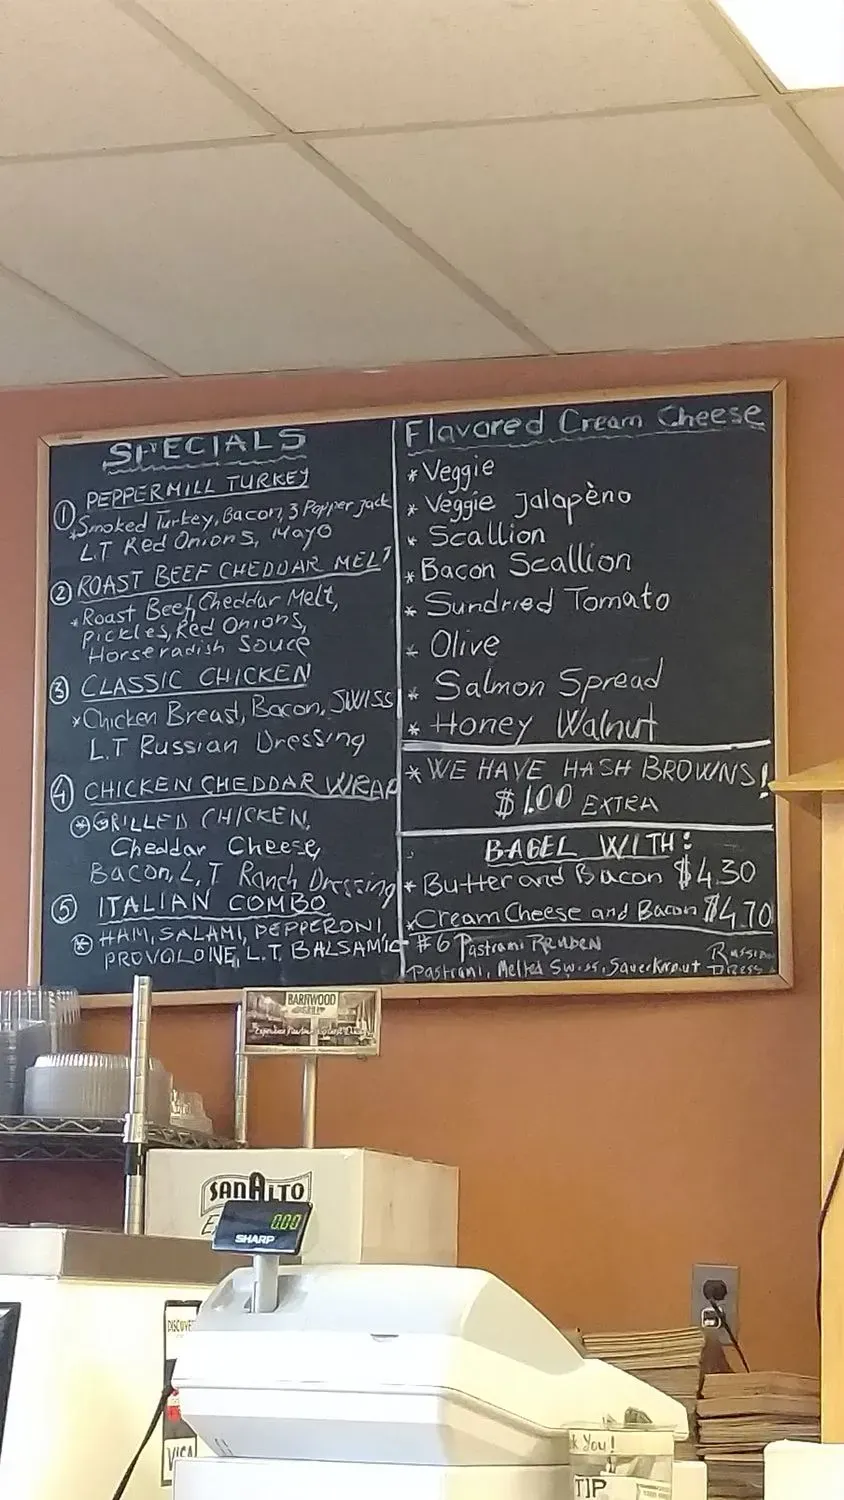 SPECIALS
① PEPPERMILL TURKEY
*Smoked Turkey, Bacon, 3 Papper jack
L.T Red Onions, Mayo
② ROAST BEEF CHEDDAR MELT
*Roast Beef, Cheddar Melt,
Pickles, Red Onions,
Horseradish Souce
③ CLASSIC CHICKEN
*Chicken Breast, Bacon, SWISS
L.T Russian Dressing
④ CHICKEN CHEDDAR WRAP
* GRILLED CHICKEN,
Cheddar Cheese,
Bacon, L, T Ranch Dressing
⑤ ITALIAN COMBO
* HAM, SALAMI, PEPPERONI,
PROVOLONE, L.T. BALSAMIC
Flavored Cream Cheese
* Veggie
* Veggie Jalapèno
* Scallion
* Bacon Scallion
* Sundried Tomato
* Olive
* Salmon Spread
* Honey Walnut
* WE HAVE HASH BROWNS!
$1.00 EXTRA
BAGEL WITH:
* Butter and Bacon $4.30
* Cream Cheese and Bacon $4.70
#6 Pastrami REUBEN
Pastrami, Melted Swiss, Sauerkraut Russian
Dress
BARNWOOD
GRILL
SANALTO
0.00
SHARP
DISCOVER
VISA
k You!
TIP